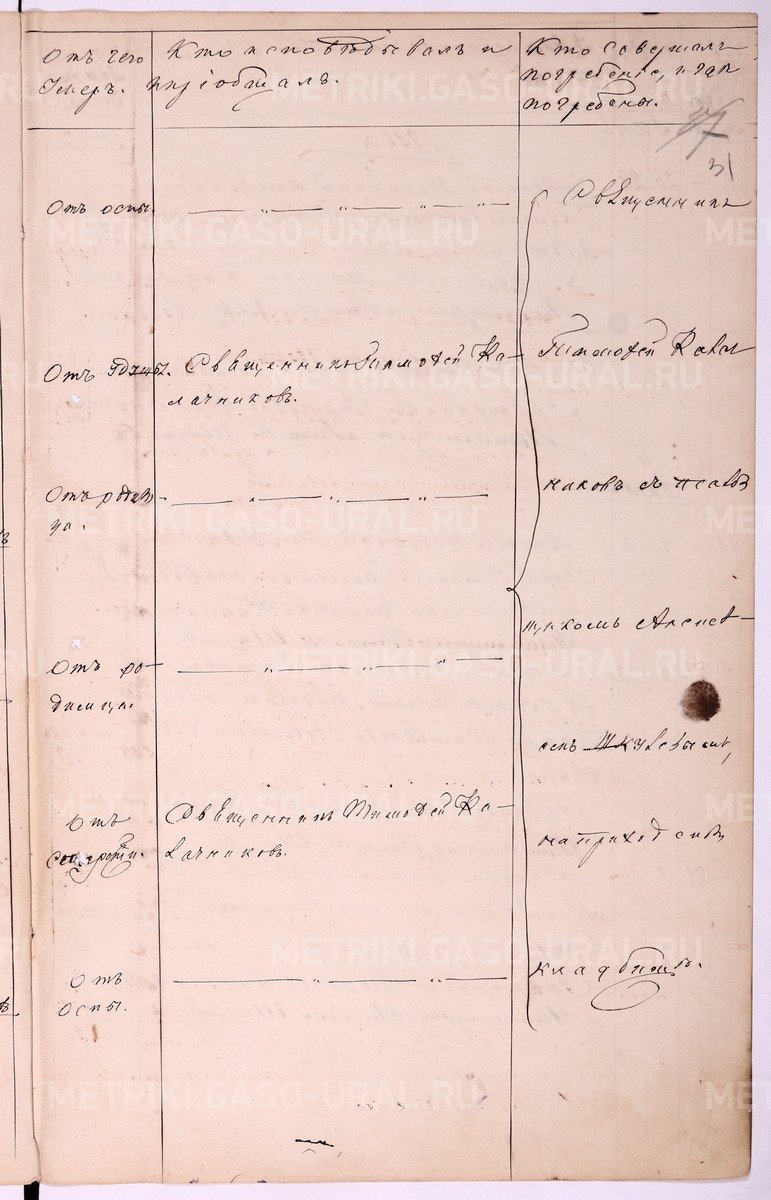 Отъ чего
Умеръ.
Кто исповѣдывалъ и
пріобщалъ.
Кто совершалъ
погребеніе, и гдѣ
погребены.
37
31
Отъ оспы.
Священникъ
Отъ
Священникъ Тимоѳей Ка-
лачниковъ.
Тимоѳей Калач
Отъ родим
ца.
никовъ съ псалом
щикомъ Алексѣ-
Отъ ро-
димца.
емъ
на приходском
Отъ
старости.
Священникъ Тимоѳей Ка-
лачниковъ.
кладбищѣ.
Отъ
Оспы.
METRIKI.GASO-URAL.RU